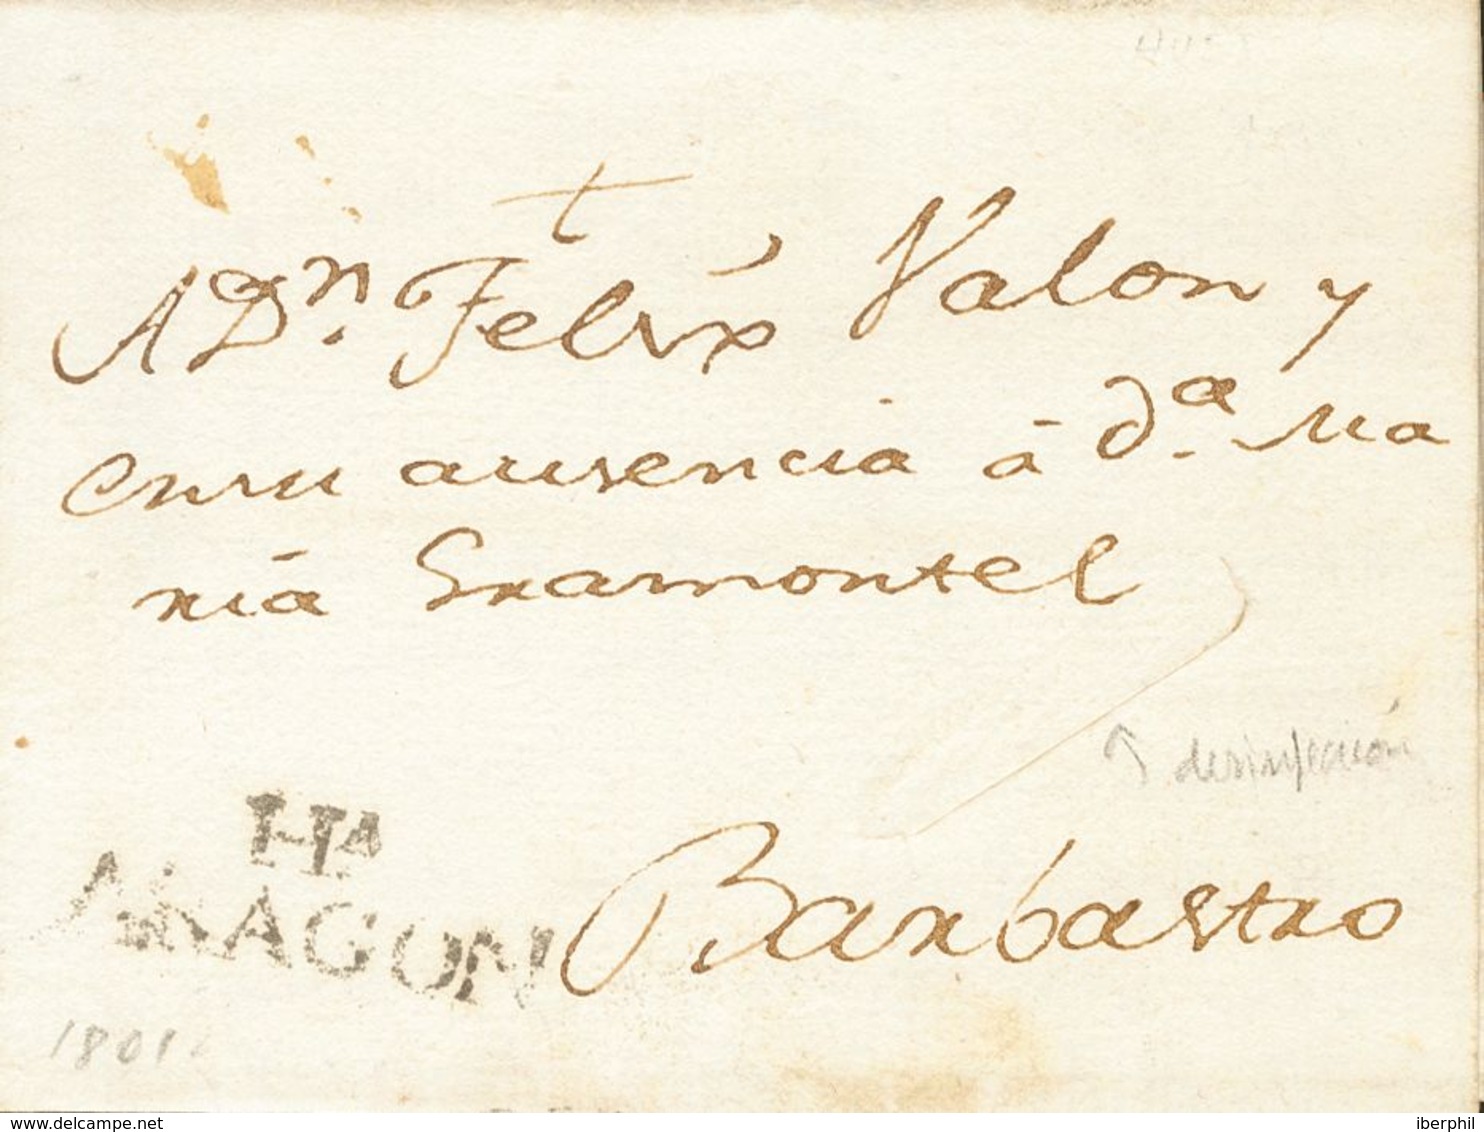 A Dn. Felix Valon y
en su ausencia â da. Ma
ria Gramontel
desinfección
Ha
ARAGON
Barbastro
1801
delcampe.net
iberphil